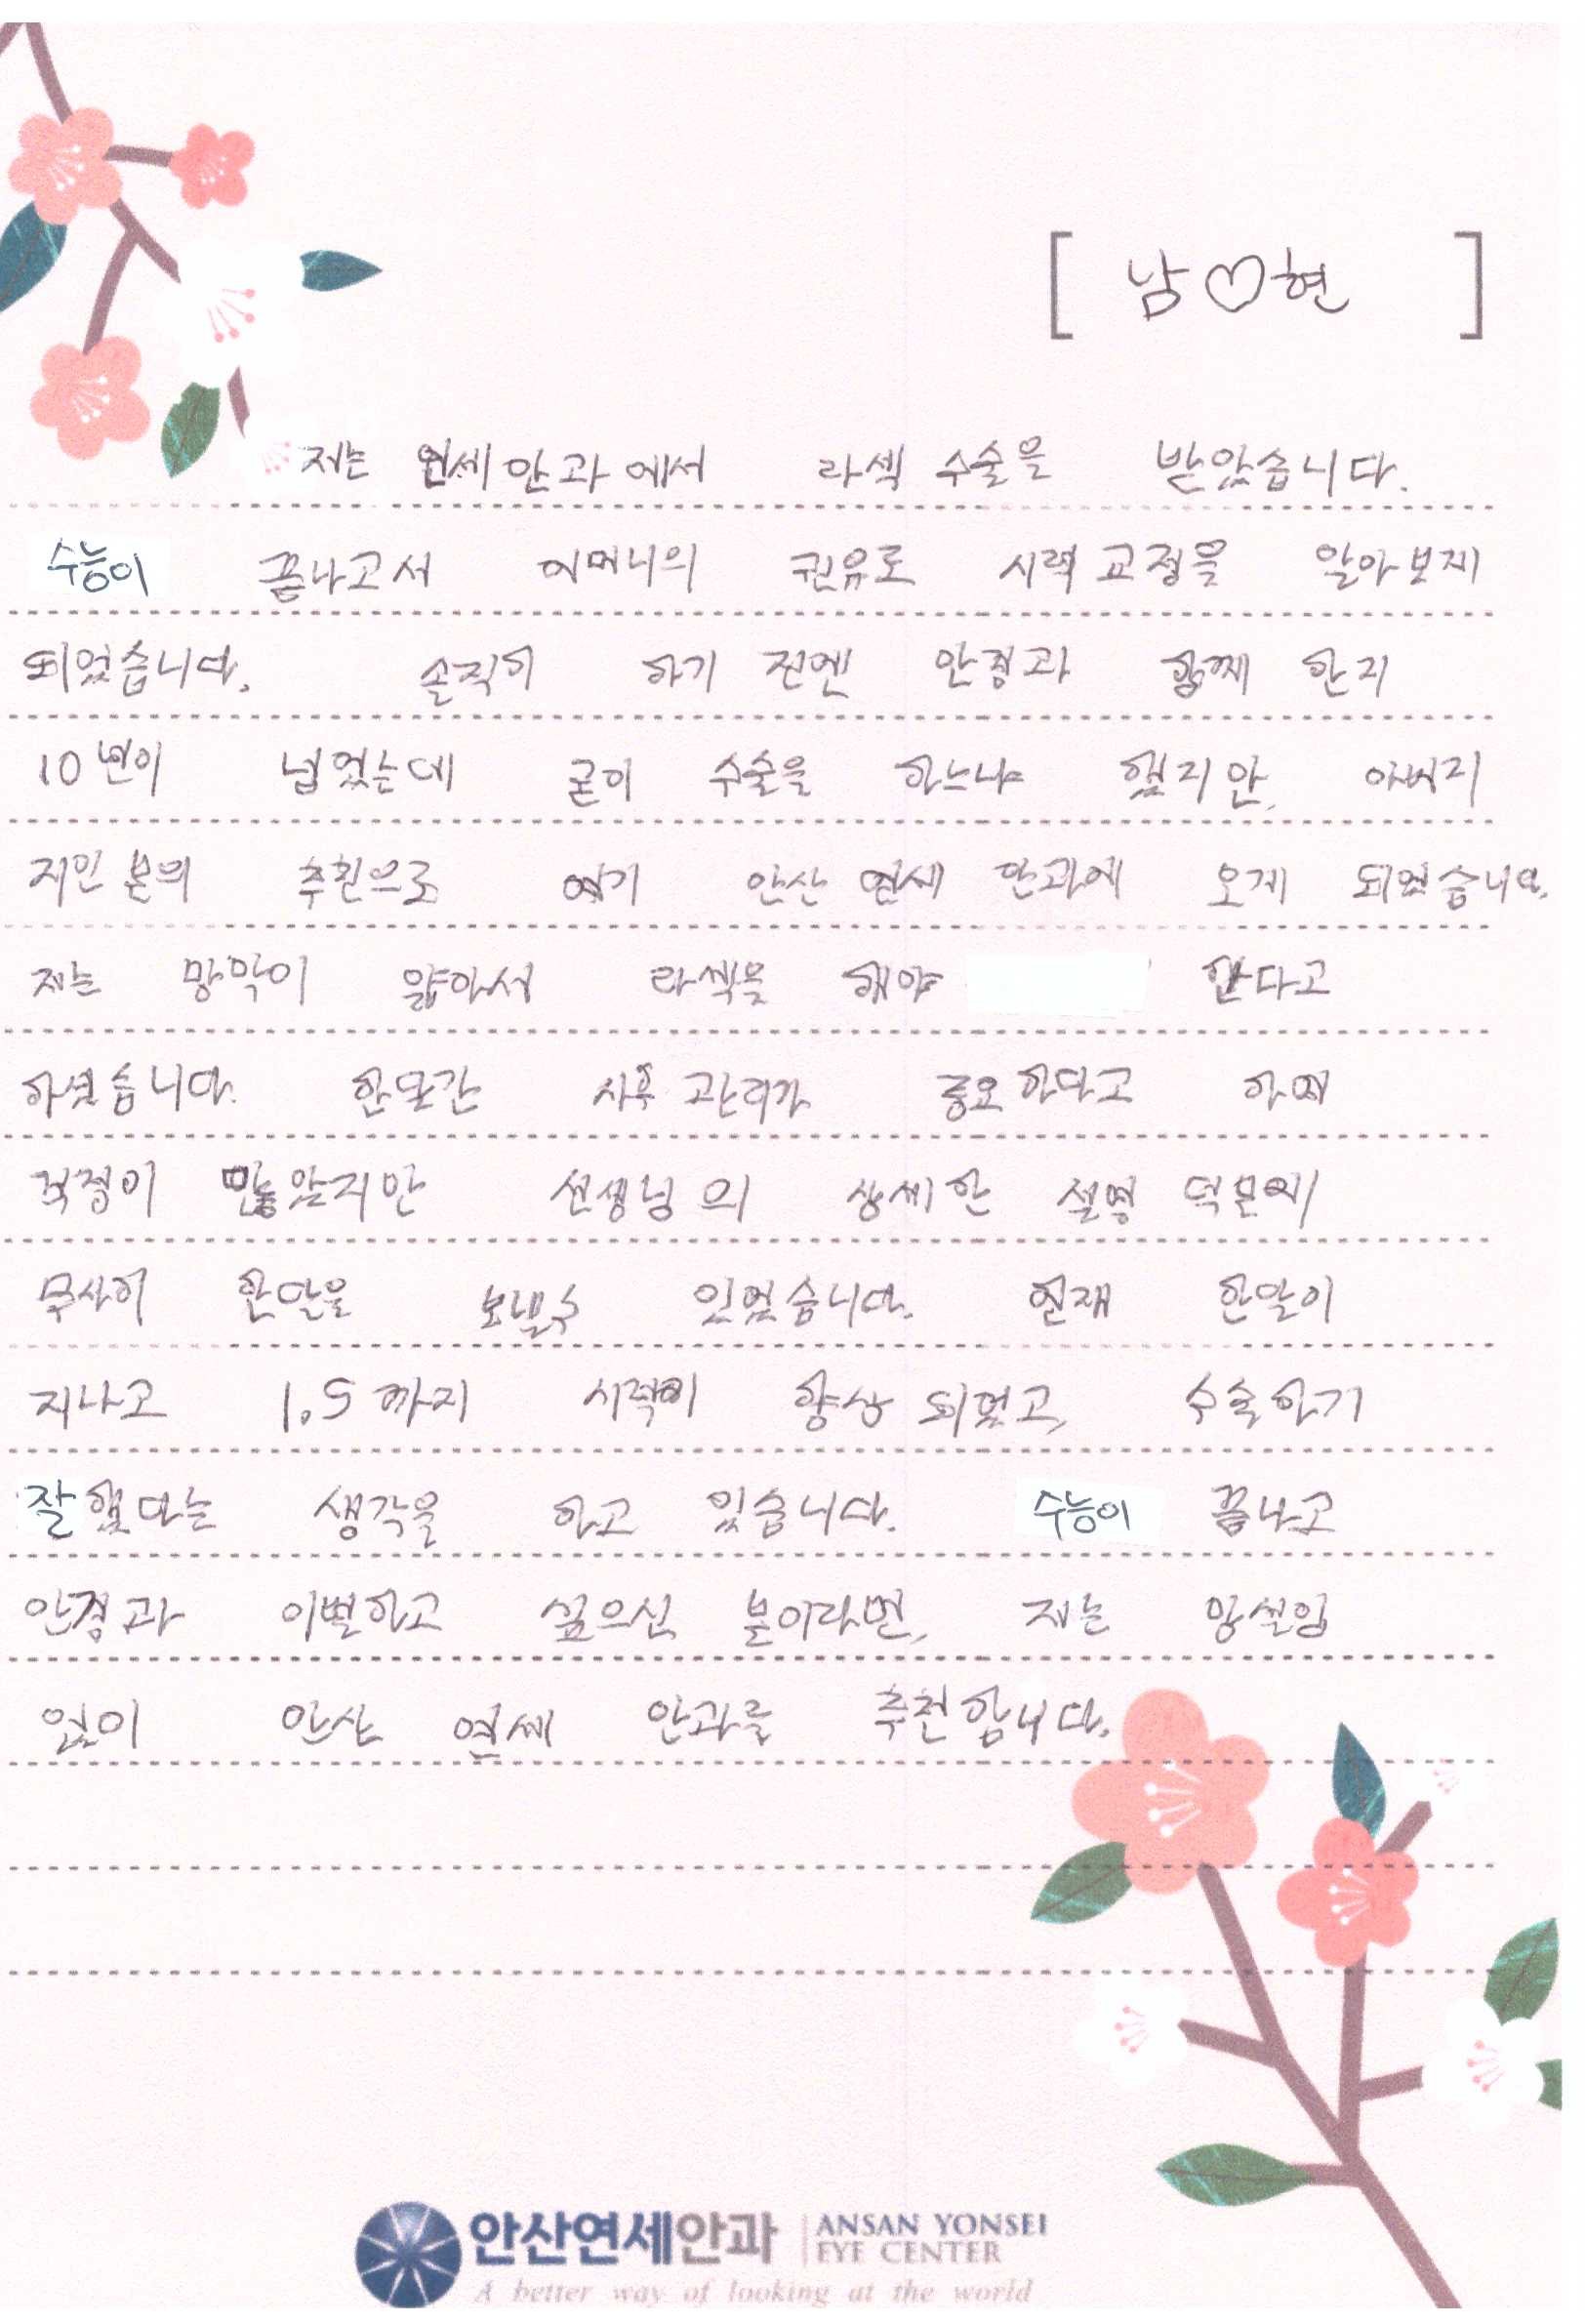 [ 남♡현 ]
저는 연세안과에서 라섹 수술을 받았습니다.
수능이 끝나고서 어머니의 권유로 시력교정을 알아보게
되었습니다. 솔직히 하기 전엔 안경과 함께 한지
10년이 넘었는데 굳이 수술을 하느냐 했지만, 아버지
지인분의 추천으로 여기 안산 연세 안과에 오게 되었습니다.
저는 망막이 얇아서 라섹을 해야 한다고
하셨습니다. 한달간 사후관리가 중요하다고 하여
걱정이 많았지만 선생님의 상세한 설명 덕분에
무사히 한달을 보낼수 있었습니다. 현재 한달이
지나고 1.5까지 시력이 향상되었고, 수술하기
잘했다는 생각을 하고 있습니다. 수능이 끝나고
안경과 이별하고 싶으신 분이라면, 저는 망설임
없이 안산 연세 안과를 추천합니다.
안산연세안과 | ANSAN YONSEI
EYE CENTER
A better way of looking at the world